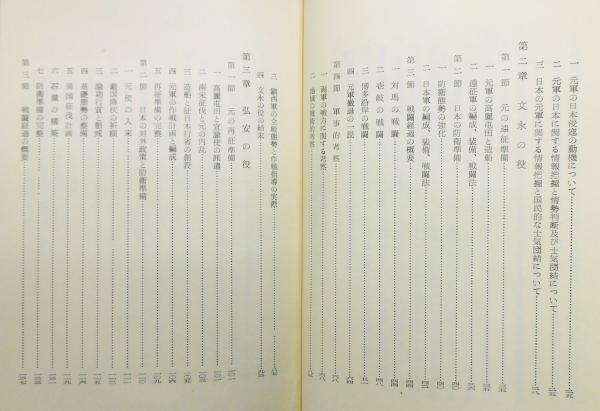 一 元軍の日本侵寇の動機について
二 元軍の日本に関する情報把握と情勢判断及び士気団結について
三 日本の元軍に関する情報把握と国民的な士気団結について
第二章 文永の役
第一節 元の遠征準備
一 元軍の高麗屯田と造船
二 遠征軍の編成、装備、戦闘法
第二節 日本の防衛準備
一 防衛態勢の強化
二 日本軍の編成、装備、戦闘法
第三節 戦闘経過の概要
一 対馬の戦闘
二 壱岐の戦闘
三 博多沿岸の戦闘
四 元軍撤退の一説
第四節 軍事的考察
一 両軍の戦力に関する考察
二 地域の戦術的考察
三 鎮西軍の全般態勢と作戦指導の実際
四 文永の役の結末
第三章 弘安の役
第一節 元の再征準備
一 高麗屯田と宣諭使の派遣
二 南宋征伐と元の内乱
三 造船と征日本行省の創設
四 元軍の作戦計画と編成
五 再征準備の完整
第二節 日本の対外政策と防衛準備
一 元使の入来
二 敵国降伏の祈願
三 論功行賞と懲戒
四 基礎態勢の整備
五 異国征伐計画
六 石塁の構築
七 防衛準備の完整
第三節 戦闘経過の概要